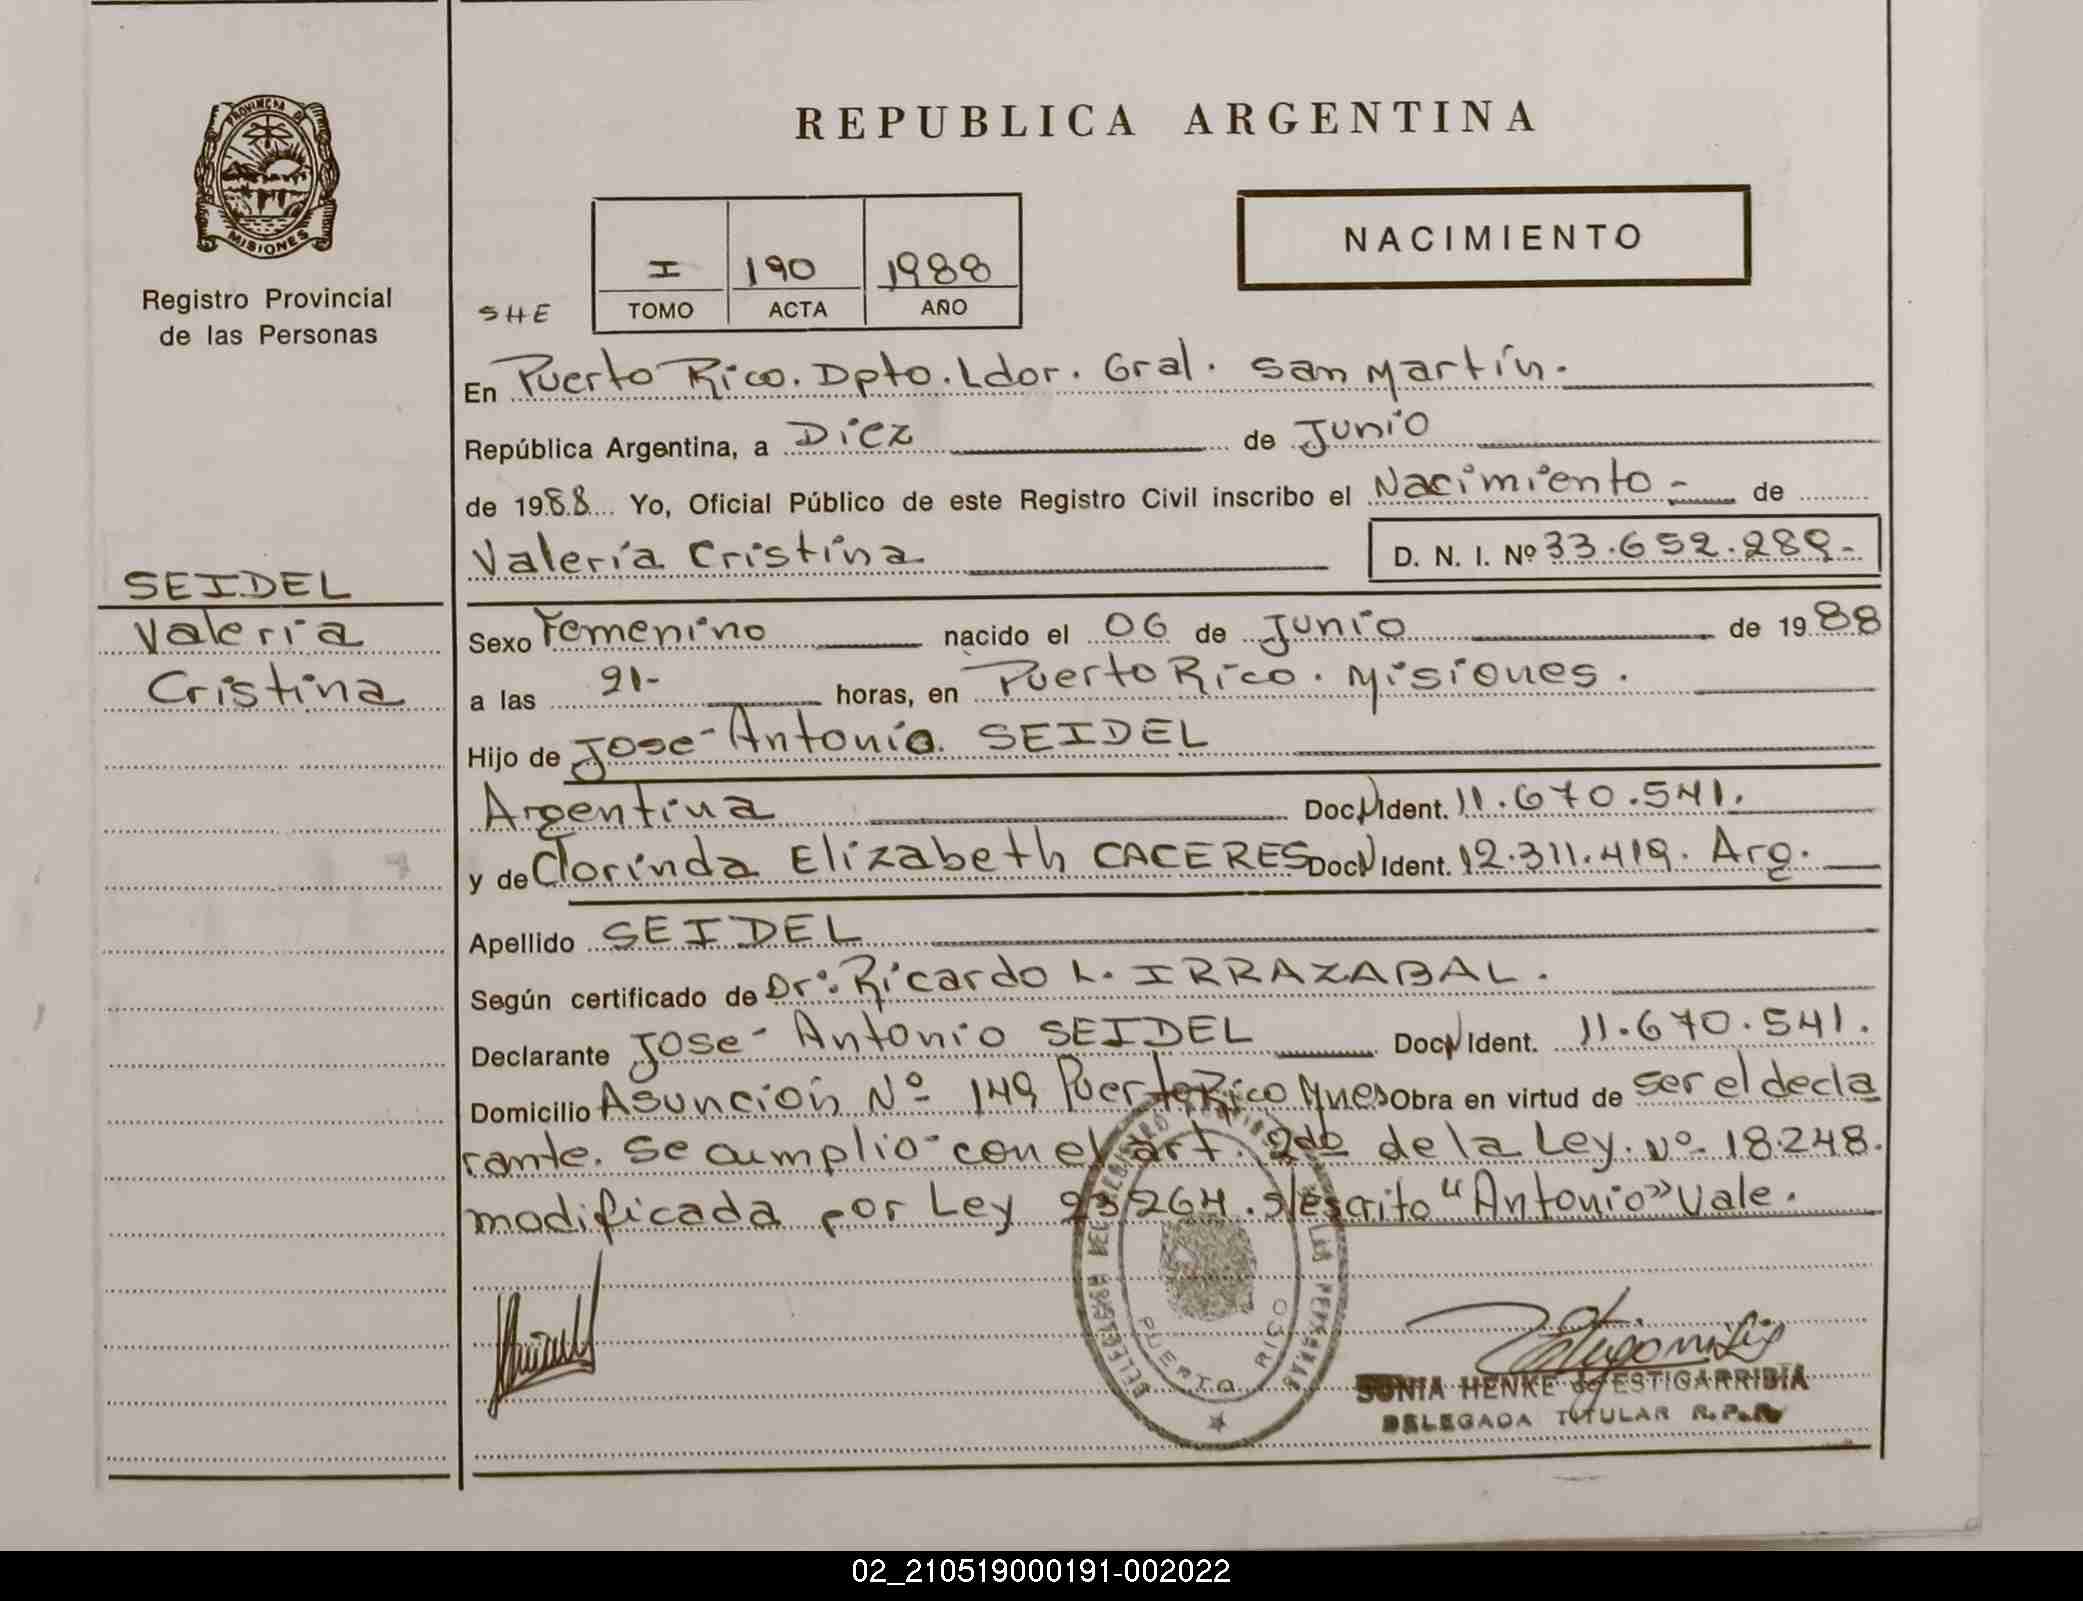 PROVINCIA DE
MISIONES
Registro Provincial
de las Personas
SEIDEL
Valeria
Cristina
REPUBLICA ARGENTINA
I 190 1988
TOMO ACTA AÑO
NACIMIENTO
SHE
En Puerto Rico. Dpto. Ldor. Gral. San Martín.
República Argentina, a Diez de Junio
de 1988 Yo, Oficial Público de este Registro Civil inscribo el Nacimiento - de
Valeria Cristina D. N. I. Nº 33.652.289-
Sexo Femenino nacido el 06 de Junio de 1988
a las 21- horas, en Puerto Rico. Misiones.
Hijo de José Antonio SEIDEL
Argentina Doc. N Ident. 11.670.541.
y de Clorinda Elizabeth CACERES Doc. N Ident. 12.311.419. Arg.
Apellido SEIDEL
Según certificado de Dr. Ricardo L. IRRAZABAL.
Declarante José Antonio SEIDEL Doc. N Ident. 11.670.541.
Domicilio Asunción Nº 149 Puerto Rico Mnes Obra en virtud de ser el decla
rante. Se cumplió con el art. 2do de la Ley. Nº 18.248.
modificada por Ley 23264. s/escrito "Antonio" Vale.
PUERTO RICO
SONIA HENKE de ESTIGARRIBIA
DELEGADA TITULAR R.P.P.
02_210519000191-002022